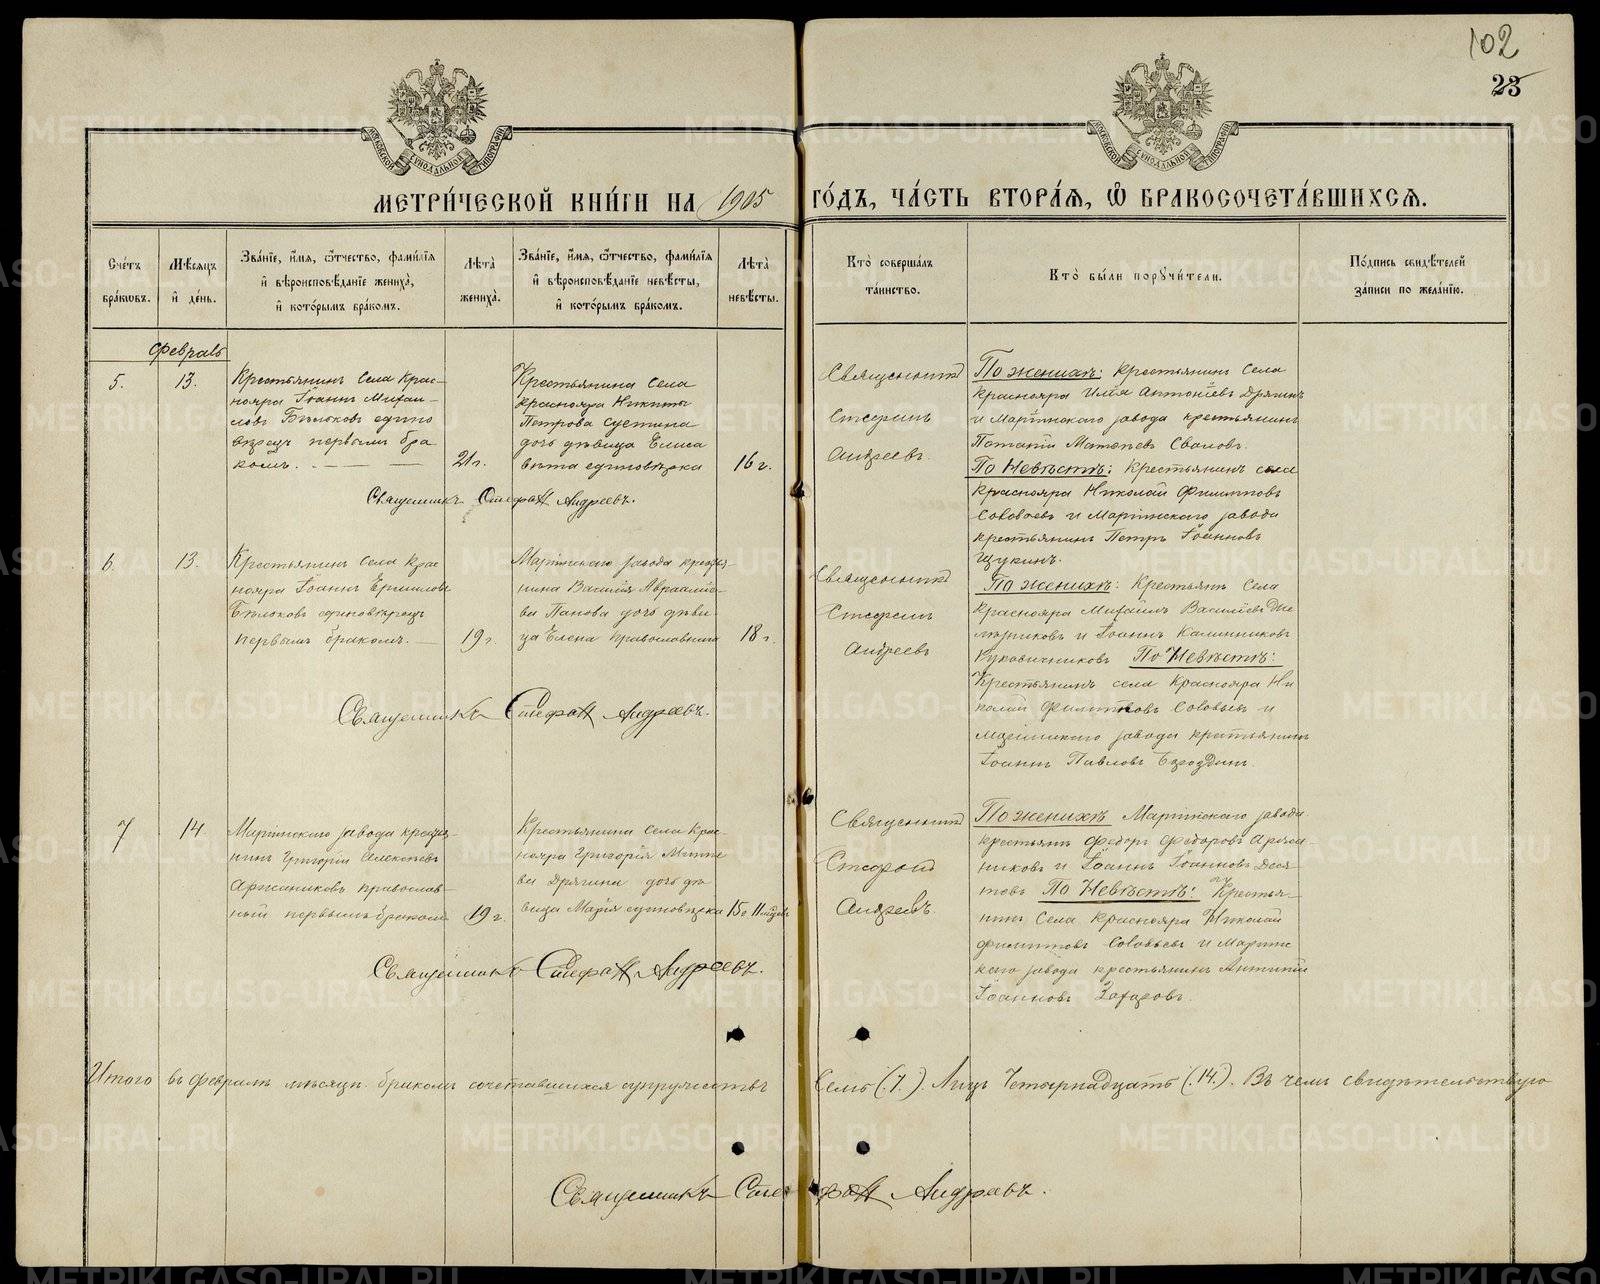 102
23
МОСКОВСКОЙ СѴНОДАЛЬНОЙ ТИПОГРАФІИ
МОСКОВСКОЙ СѴНОДАЛЬНОЙ ТИПОГРАФІИ
МЕТРИ́ЧЕСКОЙ КНИ́ГИ НА 1905 ГО́ДЪ, ЧА́СТЬ ВТОРА́Я, Ѽ БРАКОСОЧЕТА́ВШИХСѦ.
Сче́тъ бра́ковъ.
Мѣ́сяцъ и́ де́нь.
Зва́нїе, и́мя, ѻ́тчество, фами́лїя и́ вѣроисповѣ́данїе жениха̀, и́ кото́рымъ бра́комъ.
Лѣ́та̀ жениха̀.
Зва́нїе, и́мя, ѻ́тчество, фами́лїя и́ вѣроисповѣ́данїе невѣ́сты, и́ кото́рымъ бра́комъ.
Лѣ́та̀ невѣ́сты.
Кто̀ соверша́лъ та́инство.
Кто̀ бы́ли порꙋчи́тели.
По́дпись свидѣ́телей за́писи по жела́нїю.
Февраль
5.
13.
Крестьянинъ Села Крас-
нояра Іоаннъ Михаи-
ловъ Бѣльковъ едино
вѣрецъ первымъ бра
комъ.
21 г.
Крестьянина Села
Краснояра Никиты
Петрова Суетина
дочь дѣвица Елиса
вета единовѣрка
16 г.
Священникъ
Стефанъ
Андреевъ.
По женихѣ: Крестьянин Села
Краснояра Илія Антоніевъ Дрягинъ
и Маріинского завода крестьянинъ
Потапій Матѳеевъ
По Невѣстѣ: Крестьянинъ села
Краснояра Николай Филипповъ
Соловьевъ и Маріинскаго завода
крестьянинъ Петръ Іоанновъ
Щукинъ.
Священникъ Стефанъ Андреевъ.
6.
13.
Крестьянинъ Села Крас
нояра Іоаннъ Ермиловъ
Бѣльковъ единовѣрецъ
первымъ бракомъ.
19 г.
Маріинскаго завода крестья-
нина Василія Авраамо-
ва Панова дочь дѣви-
ца Елена православная
18 г.
Священникъ
Стефанъ
Андреевъ
По женихѣ: Крестьяне Села
Краснояра Михаилъ Васильевъ
и Іоаннъ Калинниковъ
По Невѣстѣ:
Крестьянинъ села Краснояра Ни
колай Филипповъ Соловьевъ и
завода крестьянинъ
Іоаннъ Павловъ
Священникъ Стефанъ Андреевъ.
7
14
Маріинскаго завода крестья-
нинъ Григорій Алексѣевъ
Аржанниковъ православ-
ный первымъ бракомъ
19 г.
Крестьянина Села Крас
нояра Григорія Матѳе
ва Дрягина дочь дѣ
вица Марія единовѣрка
15 г. 11 мѣсяцевъ
Священникъ
Стефанъ
Андреевъ.
По женихѣ Маріинскаго завода
крестьяне Федоръ Федоровъ Аржан-
никовъ и Іоаннъ Іоанновъ Деся
товъ По Невѣстѣ: Крестья-
нинъ Села Краснояра Николай
Филипповъ Соловьевъ и Маріин
скаго завода крестьянинъ Антипій
Іоанновъ Захаровъ.
Священникъ Стефанъ Андреевъ.
Итого въ февралѣ мѣсяцѣ бракомъ сочетавшихся супружествъ Семь (7.). Лицъ Четырнадцать (14.). Въ чемъ свидѣтельствую
Священникъ Стефанъ Андреевъ.
METRIKI.GASO-URAL.RU